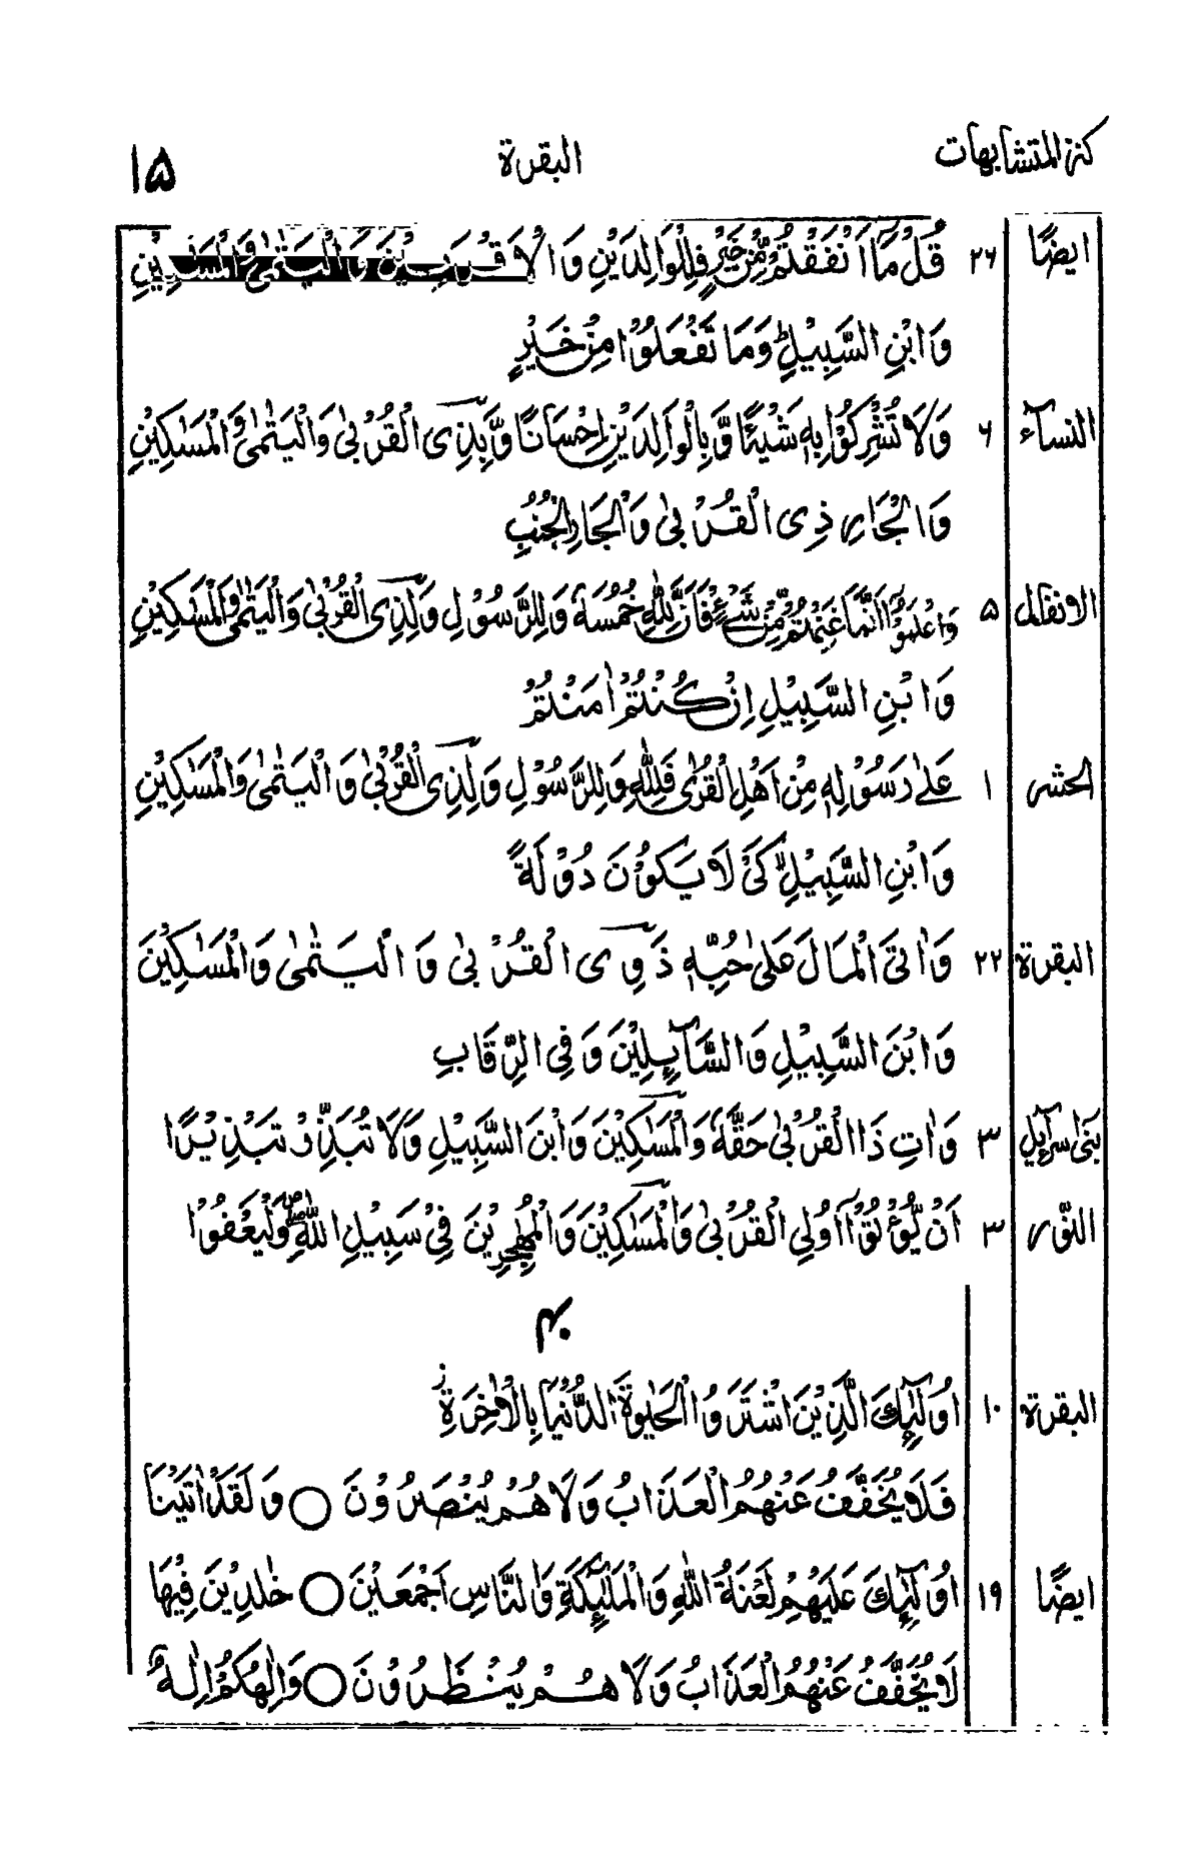 كنز المتشابهات البقرة ۱۵
ايضًا ۲۶ قُلْ مَآ اَنْفَقْتُمْ مِّنْ خَيْرٍ فَلِلْوَالِدَيْنِ وَالْاَقْرَبِيْنَ وَالْيَتٰمٰى وَالْمَسٰكِيْنِ
وَابْنِ السَّبِيْلِ ؕ وَمَا تَفْعَلُوْا مِنْ خَيْرٍ
النسآء ۶ وَلَا تُشْرِكُوْا بِهٖ شَيْئًا وَّبِالْوَالِدَيْنِ اِحْسَانًا وَّبِذِى الْقُرْبٰى وَالْيَتٰمٰى وَالْمَسٰكِيْنِ
وَالْجَارِ ذِى الْقُرْبٰى وَالْجَارِ الْجُنُبِ
الانفال ۵ وَاعْلَمُوْٓا اَنَّمَا غَنِمْتُمْ مِّنْ شَىْءٍ فَاَنَّ لِلّٰهِ خُمُسَهٗ وَلِلرَّسُوْلِ وَلِذِى الْقُرْبٰى وَالْيَتٰمٰى وَالْمَسٰكِيْنِ
وَابْنِ السَّبِيْلِ اِنْ كُنْتُمْ اٰمَنْتُمْ
الحشر ۱ عَلٰى رَسُوْلِهٖ مِنْ اَهْلِ الْقُرٰى فَلِلّٰهِ وَلِلرَّسُوْلِ وَلِذِى الْقُرْبٰى وَالْيَتٰمٰى وَالْمَسٰكِيْنِ
وَابْنِ السَّبِيْلِ ۙ كَىْ لَا يَكُوْنَ دُوْلَةً
البقرة ۲۲ وَاٰتَى الْمَالَ عَلٰى حُبِّهٖ ذَوِى الْقُرْبٰى وَالْيَتٰمٰى وَالْمَسٰكِيْنَ
وَابْنَ السَّبِيْلِ وَالسَّآئِلِيْنَ وَفِى الرِّقَابِ
بنى اسرآئيل ۳ وَاٰتِ ذَا الْقُرْبٰى حَقَّهٗ وَالْمِسْكِيْنَ وَابْنَ السَّبِيْلِ وَلَا تُبَذِّرْ تَبْذِيْرًا
النّور ۳ اَنْ يُّؤْتُوْٓا اُولِى الْقُرْبٰى وَالْمَسٰكِيْنَ وَالْمُهٰجِرِيْنَ فِىْ سَبِيْلِ اللّٰهِ ۖ وَلْيَعْفُوْا
البقرة ۱۰ اُولٰٓئِكَ الَّذِيْنَ اشْتَرَوُا الْحَيٰوةَ الدُّنْيَا بِالْاٰخِرَةِ ز
فَلَا يُخَفَّفُ عَنْهُمُ الْعَذَابُ وَلَا هُمْ يُنْصَرُوْنَ ○ وَلَقَدْ اٰتَيْنَا
ايضًا ۱۹ اُولٰٓئِكَ عَلَيْهِمْ لَعْنَةُ اللّٰهِ وَالْمَلٰٓئِكَةِ وَالنَّاسِ اَجْمَعِيْنَ ○ خٰلِدِيْنَ فِيْهَا
لَا يُخَفَّفُ عَنْهُمُ الْعَذَابُ وَلَا هُمْ يُنْظَرُوْنَ ○ وَاِلٰهُكُمْ اِلٰهٌ